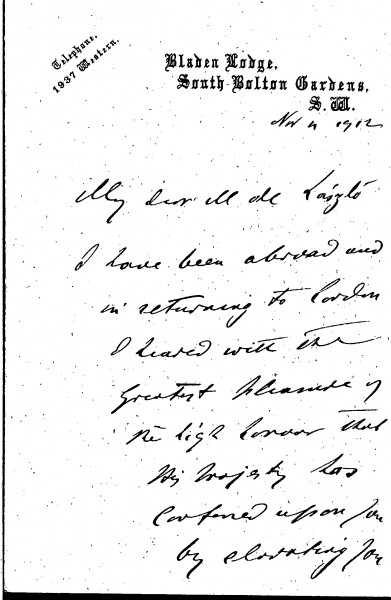 Telephone.
1937 Western.
Bladen Lodge,
South Bolton Gardens,
S.W.
Nov 4 1912
My dear M de László
I have been abroad and
in returning to London
I heared with the
greatest pleasure of
the high honour that
His Majesty has
conferred upon you
by elevating you